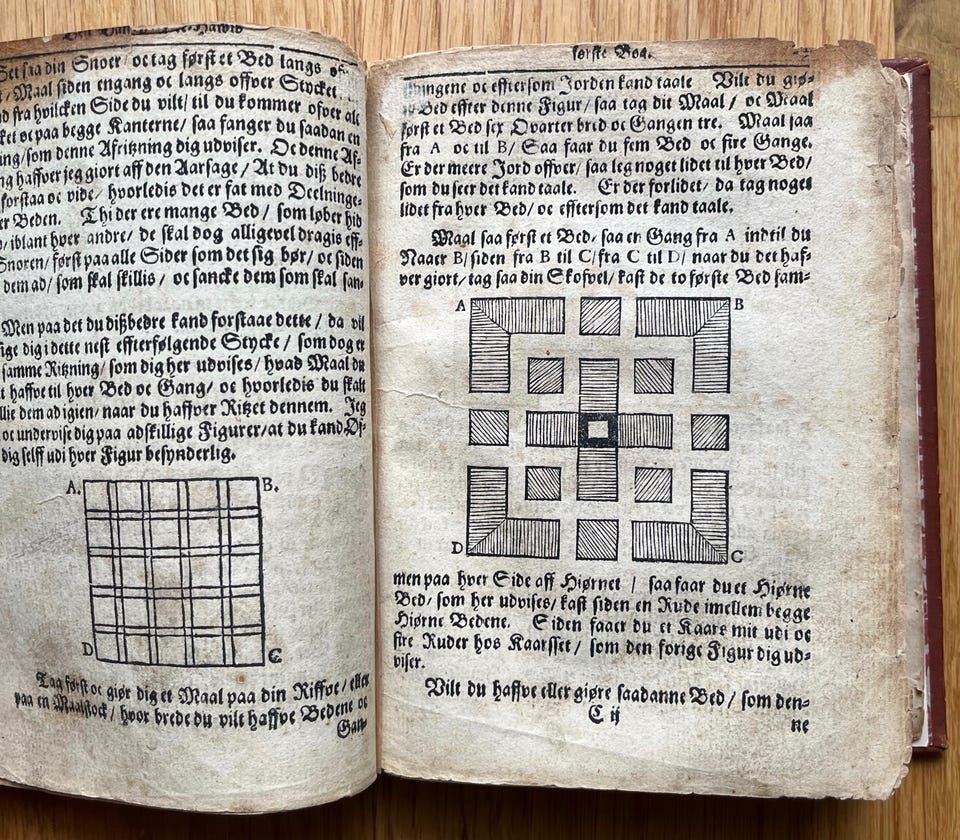 Set saa din Snoer / oc tag først et Bed langs
Maal siden engang oc langs offver Stycket
fra hvilcken Side du vilt / til du kommer ofver alt
oc paa begge Kanterne / saa fanger du saadan en
som denne Afritzning dig udviser. Oc denne Af-
haffver jeg giort aff den Aarsage / At du diß bedre
forstaa oc vide / hvorledis det er fat med Deelninge-
Beden. Thi der ere mange Bed / som løber hid
iblant hver andre / de skal dog alligevel dragis eff-
Snoren / først paa alle Sider som det sig bør / oc siden
dem ad / som skal skillis / oc sancke dem som skal san-
Men paa det du dißbedre kand forstaae dette / da vil
dig i dette nest effterfølgende Stycke / som dog er
samme Ritzning / som dig her udvises / hvad Maal du
haffve til hver Bed oc Gang / oc hvorledis du skalt
dem ad igien / naar du haffver Ritzet dennem. Jeg
oc undervise dig paa adskillige Figurer / at du kand
dig selff udi hver Figur besynderlig.
A. B.
D C
Tag først oc giør dig et Maal paa din Riffve / eller
paa en Maalstock / hvor brede du vilt haffve Bedene oc
Gan-
første Bog.
oc efftersom Jorden kand taale Vilt du giø-
Bed effter denne Figur / saa tag dit Maal / oc Maal
først et Bed sex Qvarter bred oc Gangen tre. Maal saa
fra A oc til B / Saa faar du fem Bed oc fire Gange.
Er der meere Jord offver / saa leg noget lidet til hver Bed /
som du seer det kand taale. Er der forlidet / da tag noget
lidet fra hver Bed / oc efftersom det kand taale.
Maal saa først et Bed / saa en Gang fra A indtil du
Naaer B / siden fra B til C / fra C til D / naar du det haf-
ver giort / tag saa din Skofvel / kast de to første Bed sam-
A B
D C
men paa hver Side aff Hiørnet / saa faar du et Hiørne
Bed / som her udvises / kast siden en Rude imellem begge
Hiørne Bedene. Siden faaer du et Kaars mit udi oc
fire Ruder hos Kaarsset / som den forige Figur dig ud-
viser.
Vilt du haffve eller giøre saadanne Bed / som den-
C ij
ne